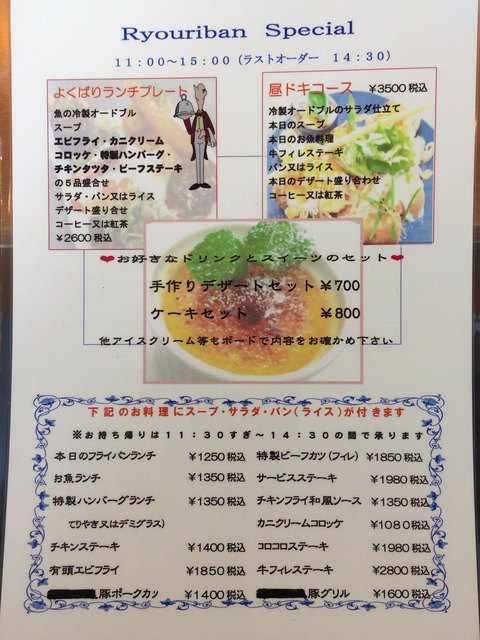 Ryouriban Special
11:00～15:00（ラストオーダー 14:30）
よくばりランチプレート
魚の冷製オードブル
スープ
エビフライ・カニクリーム
コロッケ・特製ハンバーグ・
チキンタツタ・ビーフステーキ
の５品盛合せ
サラダ・パン又はライス
デザート盛り合せ
コーヒー又は紅茶
￥2600税込
昼ドキコース ￥3500税込
冷製オードブルのサラダ仕立て
本日のスープ
本日のお魚料理
牛フィレステーキ
パン又はライス
本日のデザート盛り合わせ
コーヒー又は紅茶
❤お好きなドリンクとスイーツのセット❤
手作りデザートセット￥700
ケーキセット ￥800
他アイスクリーム等もボードで内容をお確かめ下さい
下記のお料理にスープ・サラダ・パン（ライス）が付きます
※お持ち帰りは11:30すぎ～14:30の間で承ります
本日のフライパンランチ ￥1250税込
お魚ランチ ￥1350税込
特製ハンバーグランチ ￥1350税込
てりやき又はデミグラス）
チキンステーキ ￥1400税込
有頭エビフライ ￥1850税込
豚ポークカツ ￥1400税込
特製ビーフカツ（フィレ） ￥1850税込
サービスステーキ ￥1980税込
チキンフライ和風ソース ￥1350税込
カニクリームコロッケ ￥1080税込
コロコロステーキ ￥1980税込
牛フィレステーキ ￥2800税込
豚グリル ￥1600税込